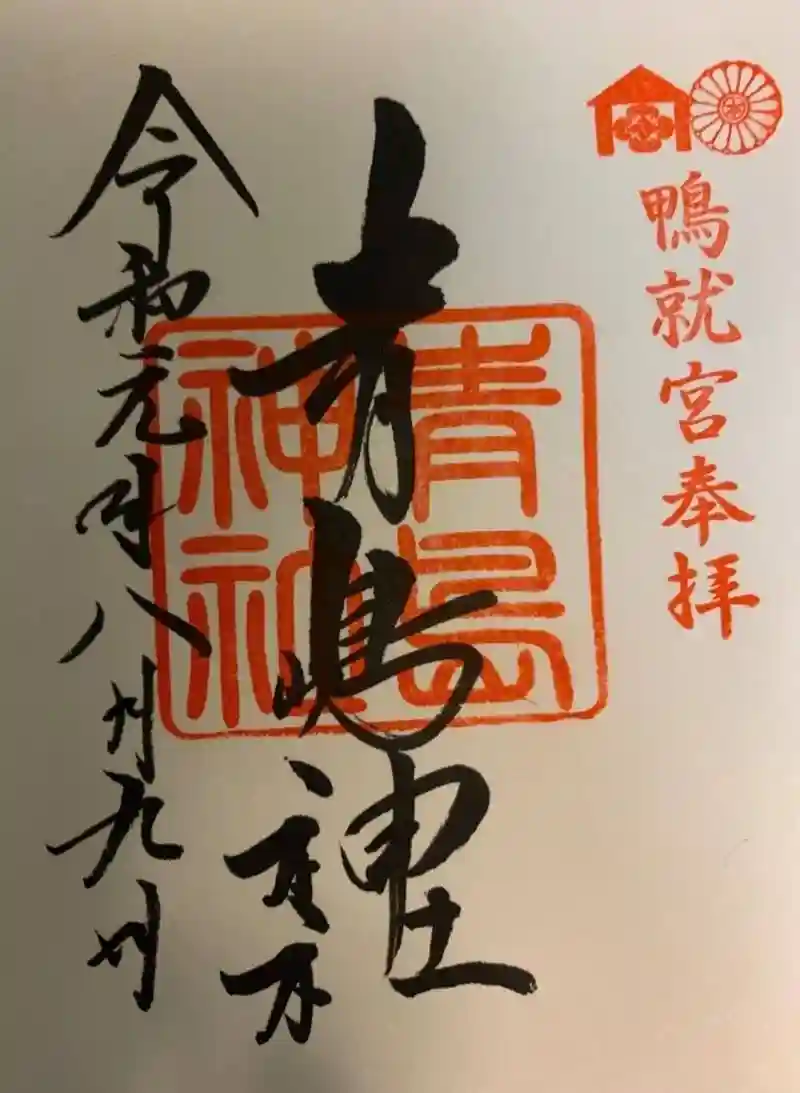 鴨就宮奉拝
青嶋神社
青島
神社
令和元年八月九日